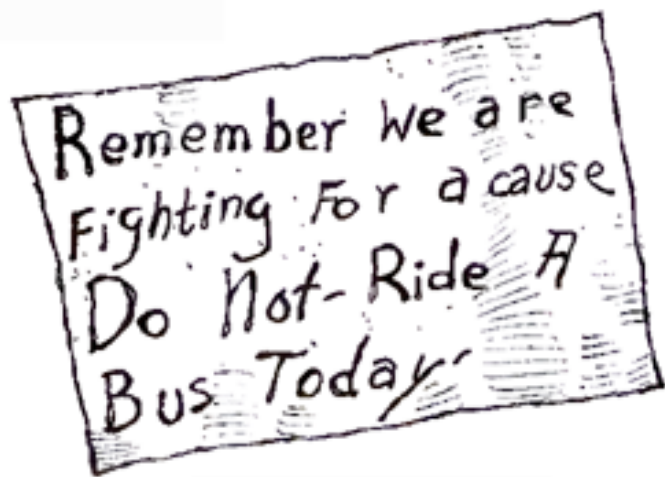 Remember We are
Fighting For a cause
Do Not- Ride A
Bus Today-